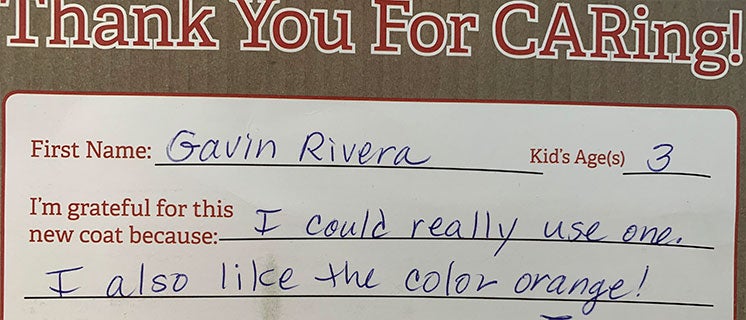 Thank You For CARing!
First Name: Gavin Rivera Kid's Age(s) 3
I'm grateful for this
new coat because: I could really use one.
I also like the color orange!